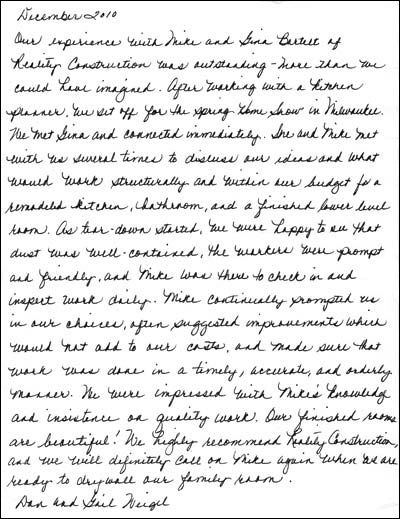 December 2010
Our experience with Mike and Gina Bartelt of
Reality Construction was outstanding - more than we
could have imagined. After working with a kitchen
planner, we set off for the spring Home Show in Milwaukee.
We met Gina and connected immediately. She and Mike met
with us several times to discuss our ideas and what
would work structurally and within our budget for a
remodeled kitchen, bathroom, and a finished lower level
room. As tear-down started, we were happy to see that
dust was well-contained, the workers were prompt
and friendly, and Mike was there to check in and
inspect work daily. Mike continually prompted us
in our choices, often suggested improvements which
would not add to our costs, and made sure that
work was done in a timely, accurate, and orderly
manner. We were impressed with Mike's knowledge
and insistence on quality work. Our finished rooms
are beautiful! We highly recommend Reality Construction,
and we will definitely call on Mike again when we are
ready to drywall our family room.
Dan and Gail Weigel